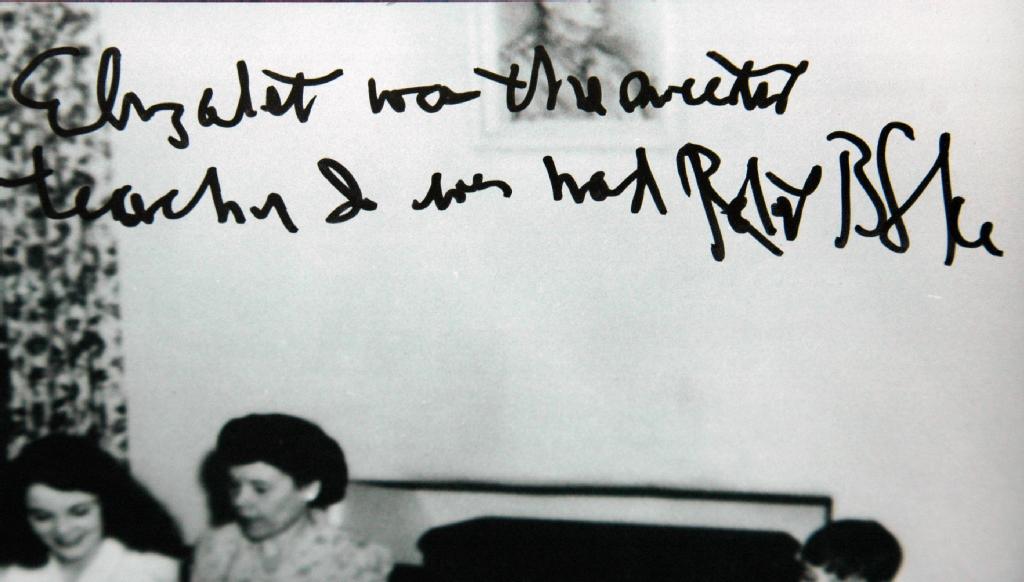 Elizabet was the sweetest
teacher I ever had Robert Blake